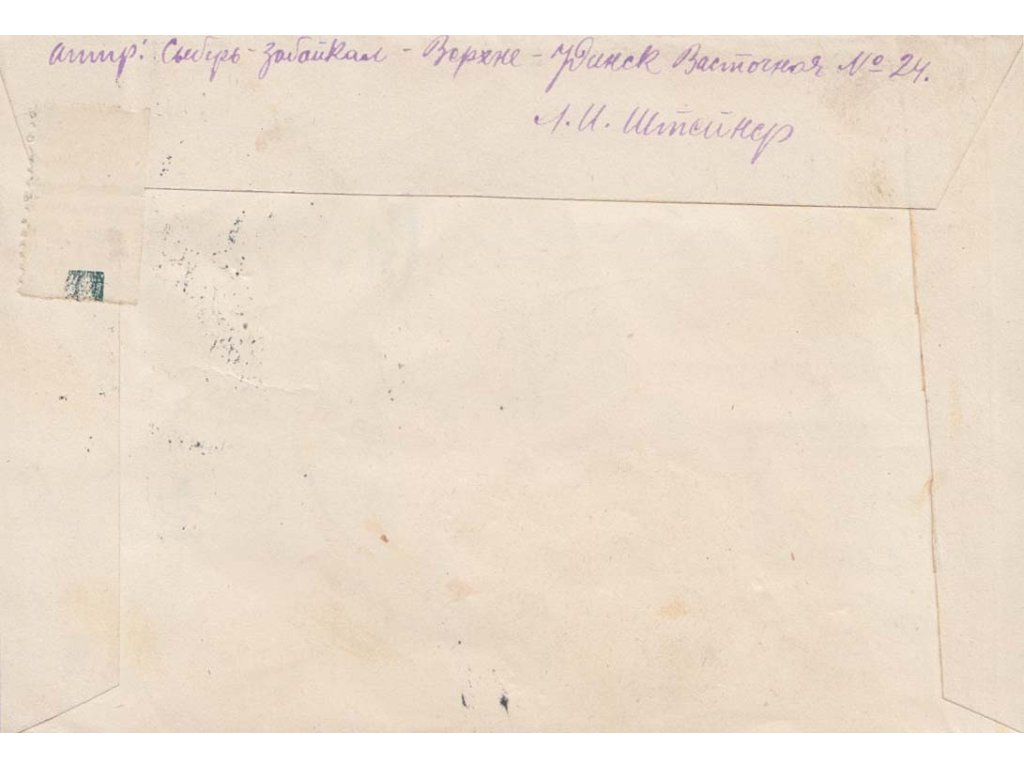 отпр: Сыбирь - Забайкал - Верхне - Удинск Восточная № 24.
Л. И. Штейнер